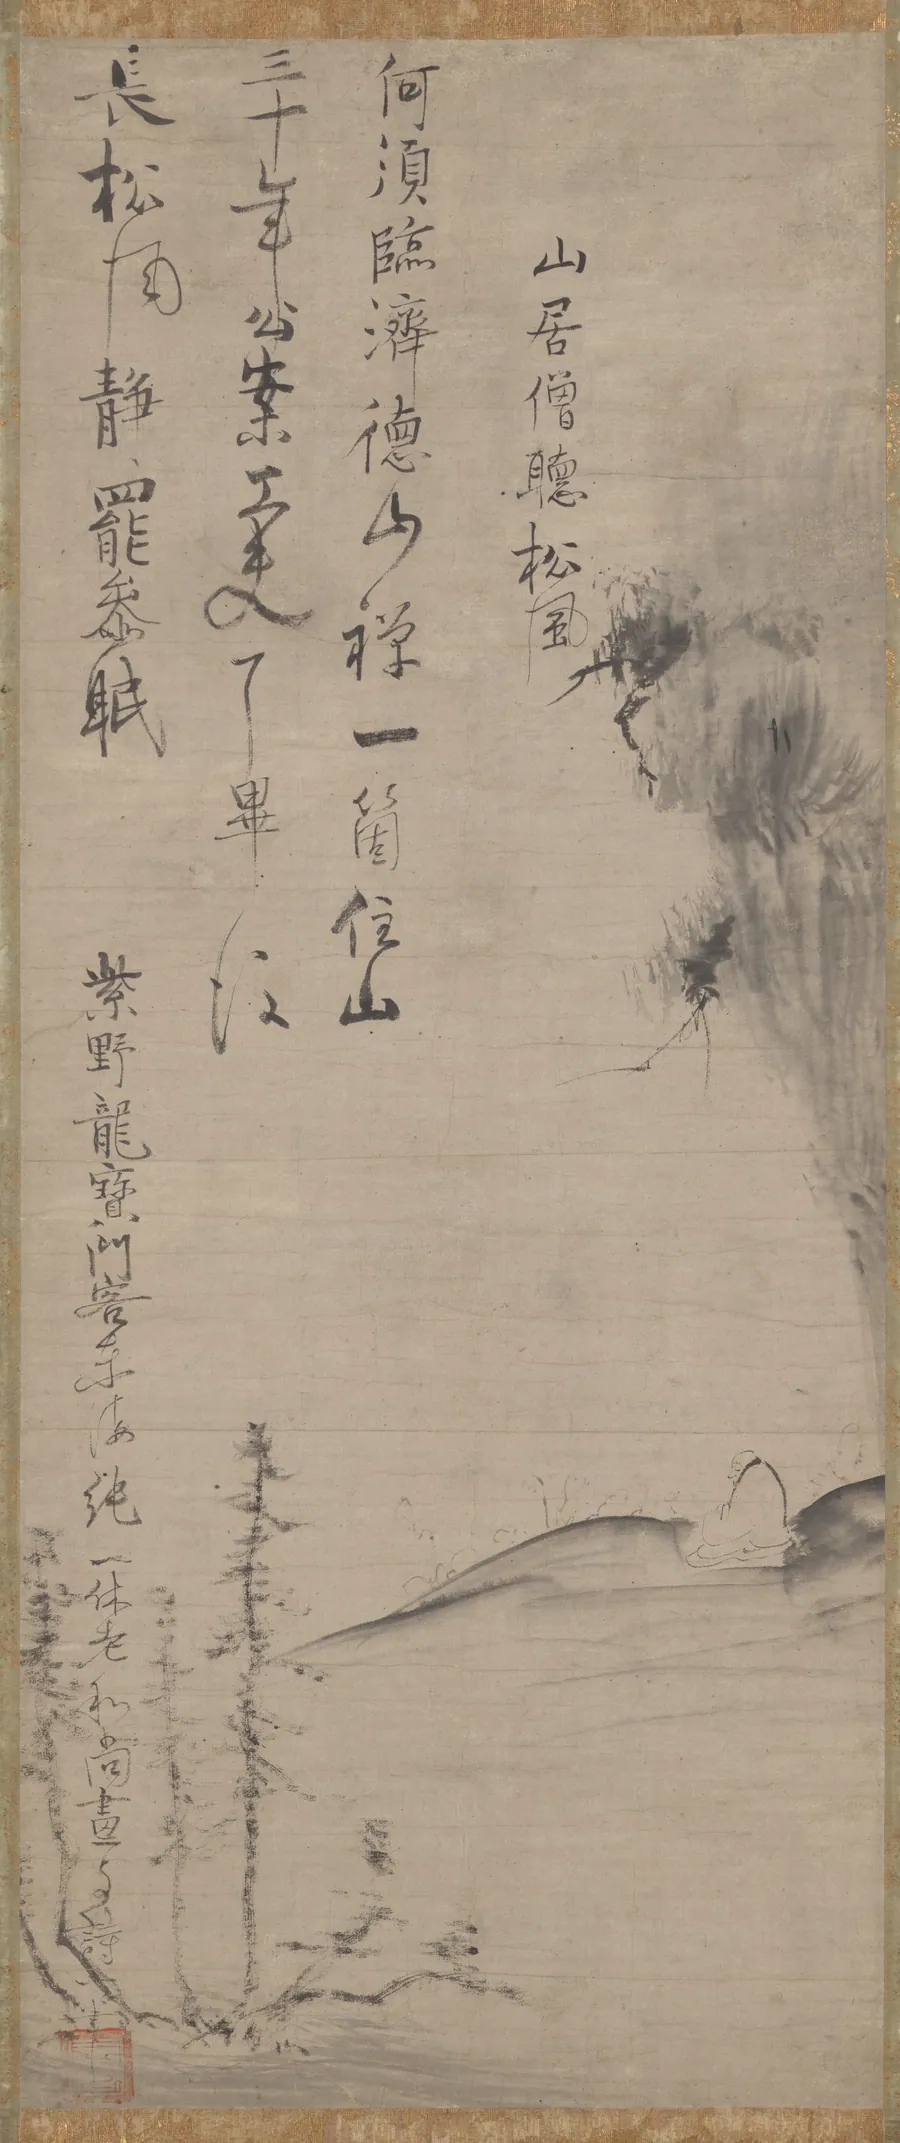 山居僧聽松風
何須臨濟德山禅一箇住山
三十年公案工夫了畢後
長松風静罷参眠
紫野龍寶門客東海純一休老和尚畫与詩